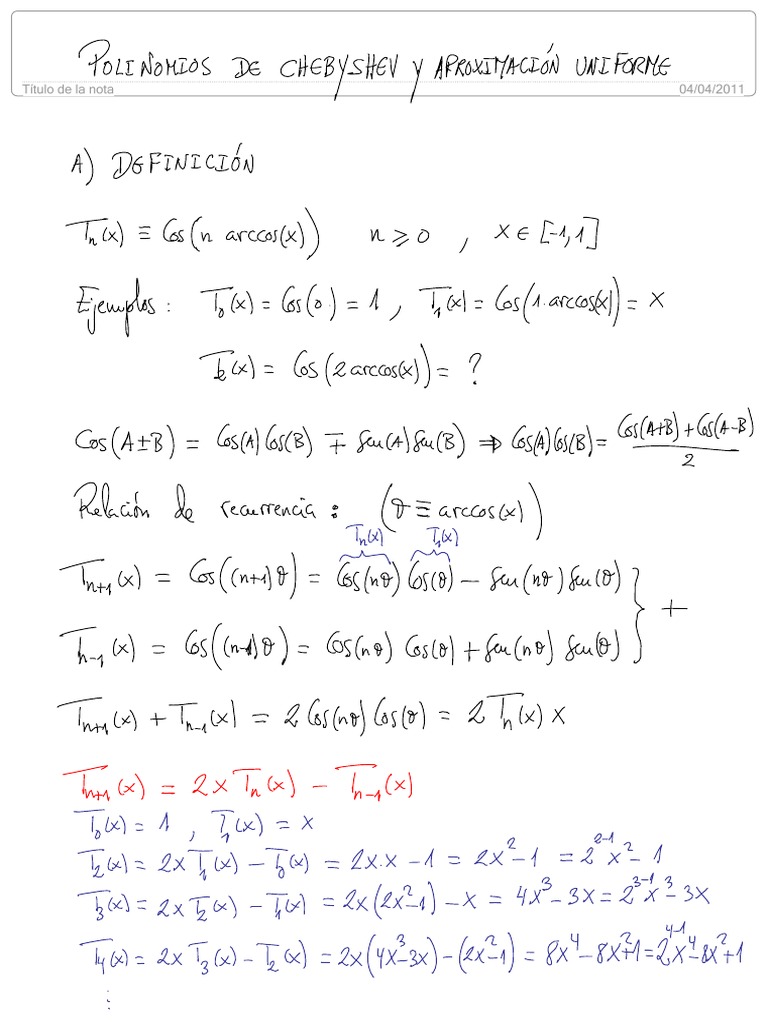 POLINOMIOS DE CHEBYSHEV Y APROXIMACIÓN UNIFORME
Título de la nota 04/04/2011
A) DEFINICIÓN
Tₙ(x) ≡ Cos(n arccos(x)) n ≥ 0 , x ∈ [-1,1]
Ejemplos: T₀(x) = Cos(0·) = 1 , T₁(x) = Cos(1·arccos(x)) = x
T₂(x) = Cos(2 arccos(x)) = ?
Cos(A±B) = Cos(A) Cos(B) ∓ Sen(A) Sen(B) ⇒ Cos(A) Cos(B) = (Cos(A+B) + Cos(A-B))/2
Relación de recurrencia: (θ ≡ arccos(x))
Tₙ(x) T₁(x)
Tₙ₊₁(x) = Cos((n+1)θ) = Cos(nθ) Cos(θ) - Sen(nθ) Sen(θ) } +
Tₙ₋₁(x) = Cos((n-1)θ) = Cos(nθ) Cos(θ) + Sen(nθ) Sen(θ)
Tₙ₊₁(x) + Tₙ₋₁(x) = 2 Cos(nθ) Cos(θ) = 2 Tₙ(x) x
Tₙ₊₁(x) = 2x Tₙ(x) - Tₙ₋₁(x)
T₀(x) = 1 , T₁(x) = x
T₂(x) = 2x T₁(x) - T₀(x) = 2x·x - 1 = 2x² - 1 = 2²⁻¹x² - 1
T₃(x) = 2x T₂(x) - T₁(x) = 2x(2x²-1) - x = 4x³ - 3x = 2³⁻¹x³ - 3x
T₄(x) = 2x T₃(x) - T₂(x) = 2x(4x³-3x) - (2x²-1) = 8x⁴ - 8x²+1 = 2⁴⁻¹x⁴ - 8x²+1
⋮